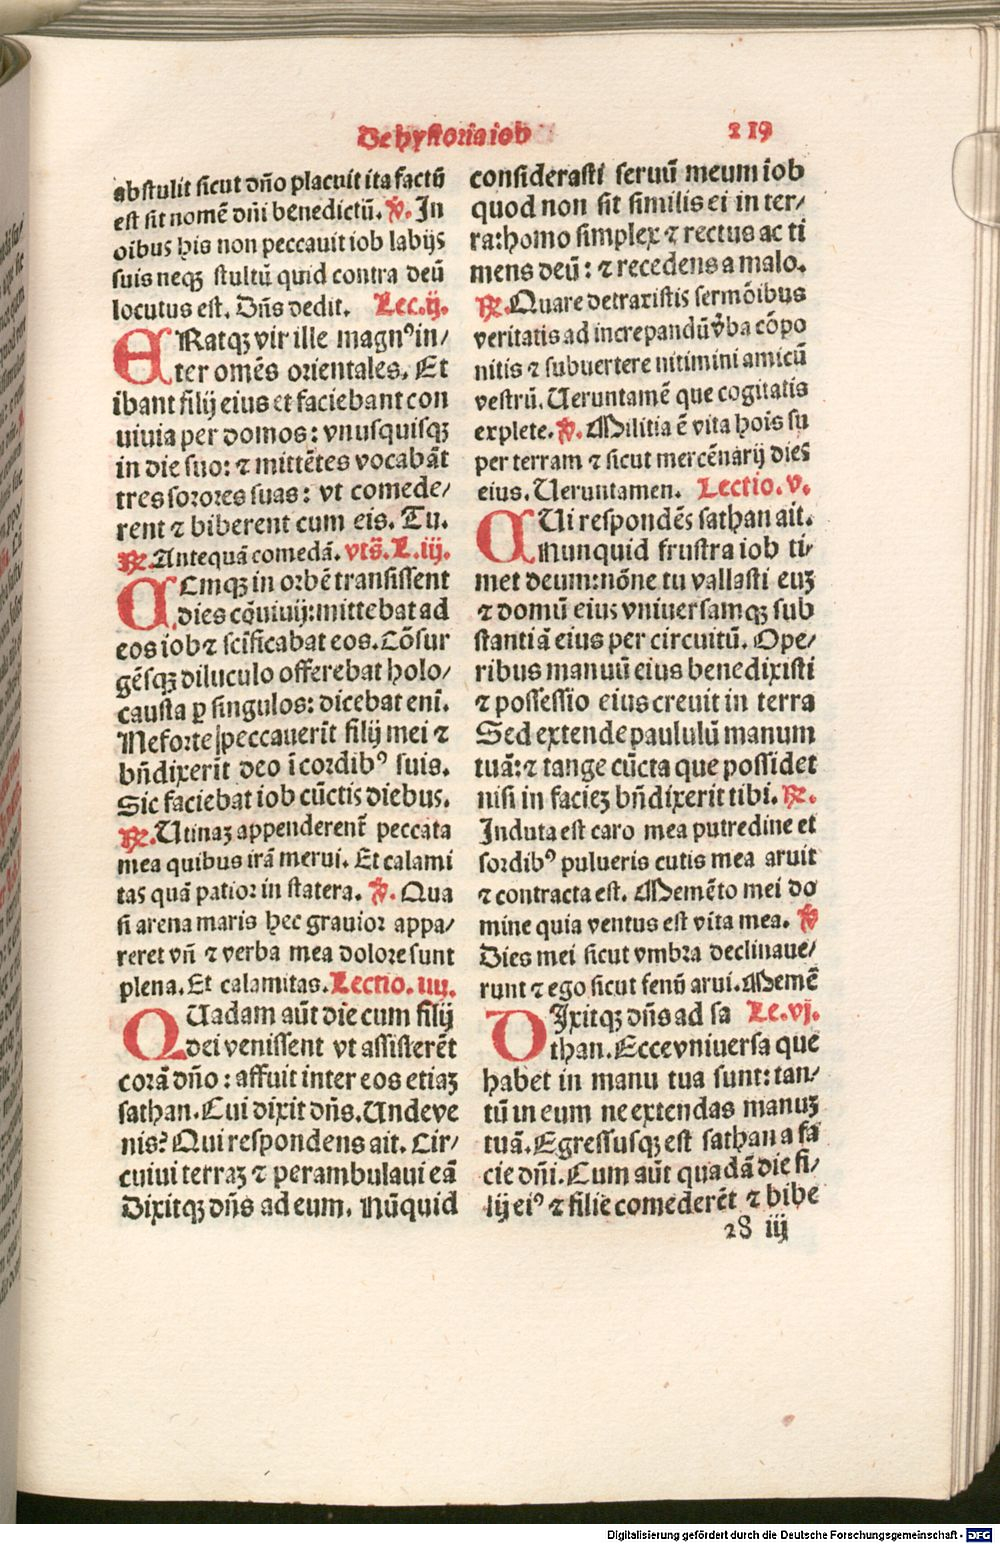 De hystoria iob
219
abstulit sicut dño placuit ita factū
est sit nomē dñi benedictū. ℣. In
oībus his non peccauit iob labijs
suis neqꝫ stultū quid contra deū
locutus est. Dñs dedit. Lec.ij.
ERatqꝫ vir ille magnꝰ in/
ter omēs orientales. Et
ibant filij eius et faciebant con
uiuia per domos: vnusquisqꝫ
in die suo: ⁊ mittētes vocabāt
tres sorores suas: vt comede/
rent ⁊ biberent cum eis. Tu.
℟. Antequā comedā. vts̄. L.iij.
CUmqꝫ in orbē transissent
dies cōuiuij: mittebat ad
eos iob ⁊ sctificabat eos. Cōsur
gēsqꝫ diluculo offerebat holo/
causta ꝑ singulos: dicebat eni̅.
Ne forte peccauerīt filij mei ⁊
bn̄dixerīt deo ī cordibꝰ suis.
Sic faciebat iob cūctis diebus.
℟. Utinaꝫ appenderent̄ peccata
mea quibus irā merui. Et calami
tas quā patior in statera. ℣. Qua
si arena maris hec grauior appa/
reret vn̄ ⁊ verba mea dolore sunt
plena. Et calamitas. Lectio. iiij.
QUadam aūt die cum filij
dei venissent vt assisterēt
corā dño: affuit inter eos etiaꝫ
sathan. Cui dixit dñs. Unde ve
nis? Qui respondens ait. Cir/
cuiui terraꝫ ⁊ perambulaui eā
Dixitqꝫ dñs ad eum. Nūquid
considerasti seruū meum iob
quod non sit similis ei in ter/
ra: homo simplex ⁊ rectus ac ti
mens deū: ⁊ recedens a malo.
℟. Quare detraxistis sermōibus
veritatis ad increpandū v̄ba cōpo
nitis ⁊ subuertere nitimini amicū
vestrū. Ueruntamē que cogitatis
explete. ℣. Militia ē vita hoīs su
per terram ⁊ sicut mercēnarij dies
eius. Ueruntamen. Lectio. v.
CUi respondēs sathan ait.
Nunquid frustra iob ti/
met deum: nōne tu vallasti euꝫ
⁊ domū eius vniuersamqꝫ sub
stantiā eius per circuitū. Ope/
ribus manuū eius benedixisti
⁊ possessio eius creuit in terra
Sed extende paululū manum
tuā: ⁊ tange cūcta que possidet
nisi in facieꝫ bn̄dixerit tibi. ℟.
Induta est caro mea putredine et
sordibꝰ pulueris cutis mea aruit
⁊ contracta est. Memēto mei do
mine quia ventus est vita mea. ℣
Dies mei sicut vmbra declinaue/
runt ⁊ ego sicut fenū arui. Memē
DIxitqꝫ dñs ad sa Le.vj.
than. Ecce vniuersa que
habet in manu tua sunt: tan/
tū in eum ne extendas manuꝫ
tuā. Egressusqꝫ est sathan a fa
cie dñi. Cum aūt quadā die fi/
lij eiꝰ ⁊ filie comederēt ⁊ bibe
28 iij
Digitalisierung gefördert durch die Deutsche Forschungsgemeinschaft - DFG